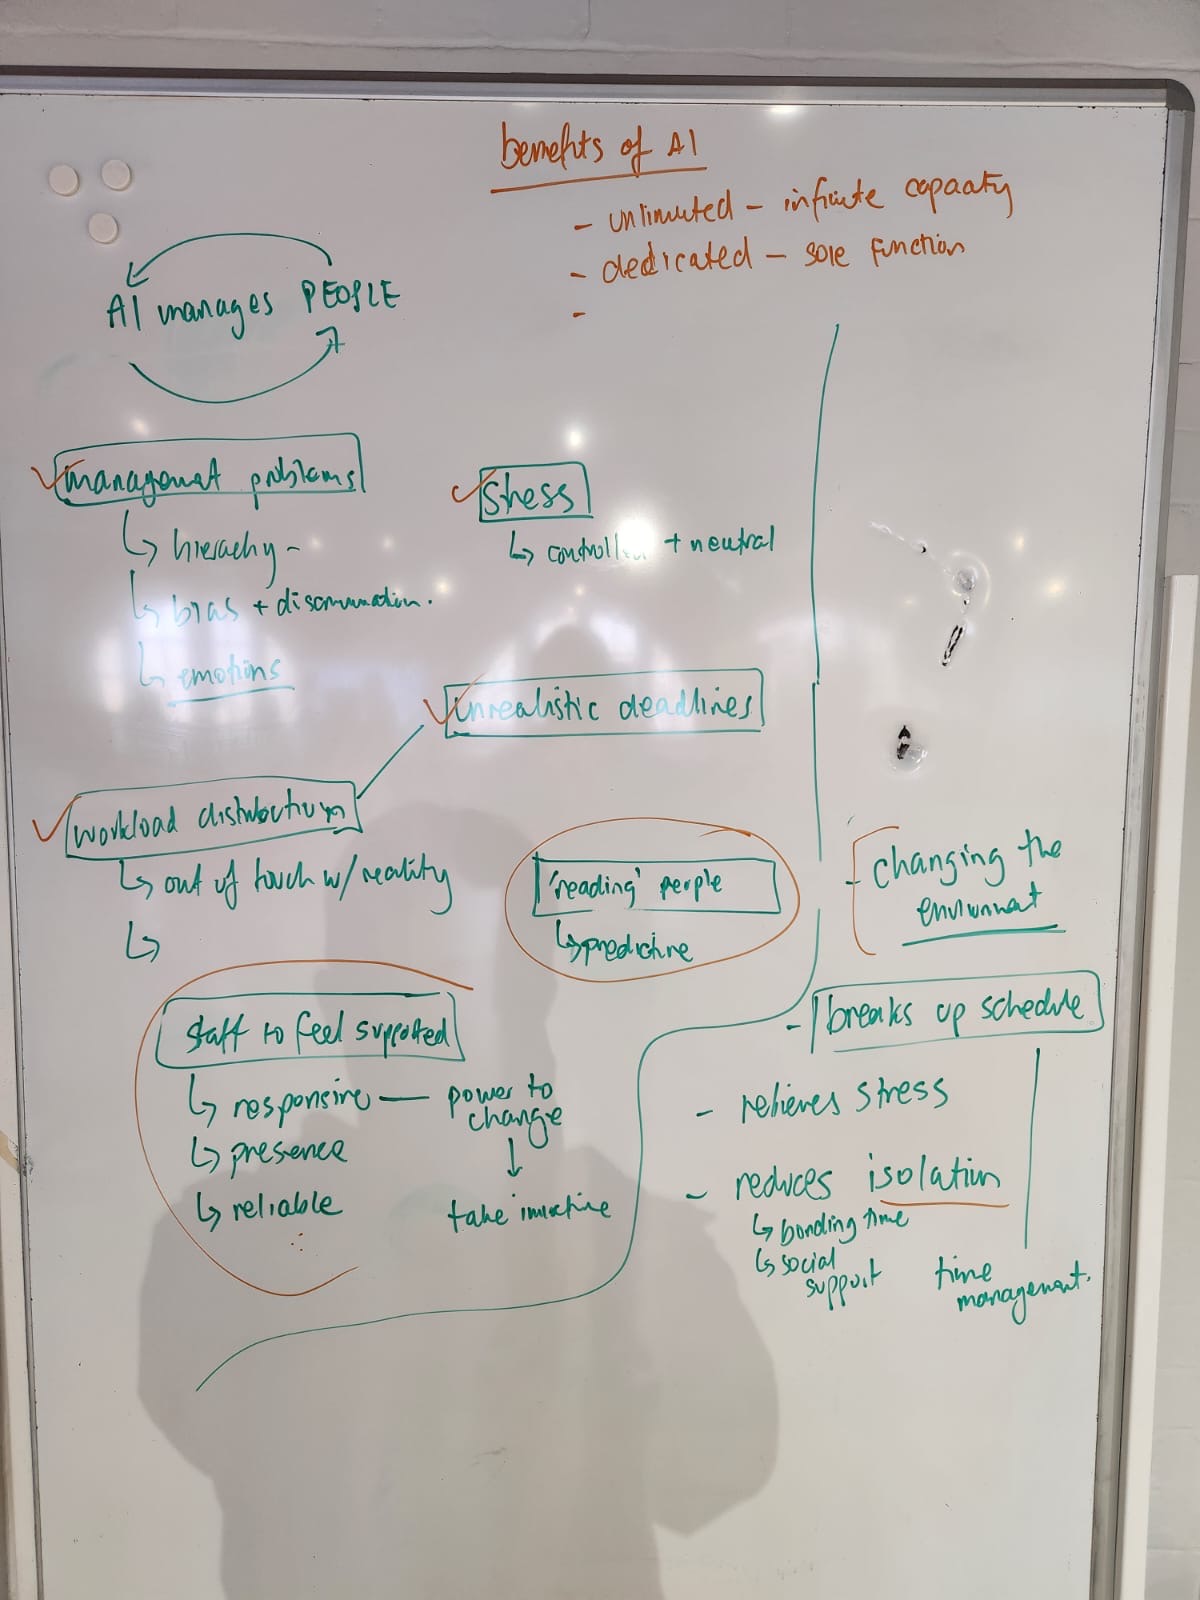 benefits of AI
- unlimited - infinite capacity
- dedicated - sole function
-
AI manages PEOPLE
management problems
↳ hierachy -
↳ bias + discrimination.
↳ emotions
stress
↳ controlled + neutral
unrealistic deadlines
workload distribution
↳ out of touch w/ reality
↳
'reading' people
↳ predictive
staff to feel supported
↳ responsive — power to
change
↓
take initiative
↳ presence
↳ reliable
- changing the
environment
- breaks up schedule
- relieves stress
- reduces isolation
↳ bonding time
↳ social
support
time
management.